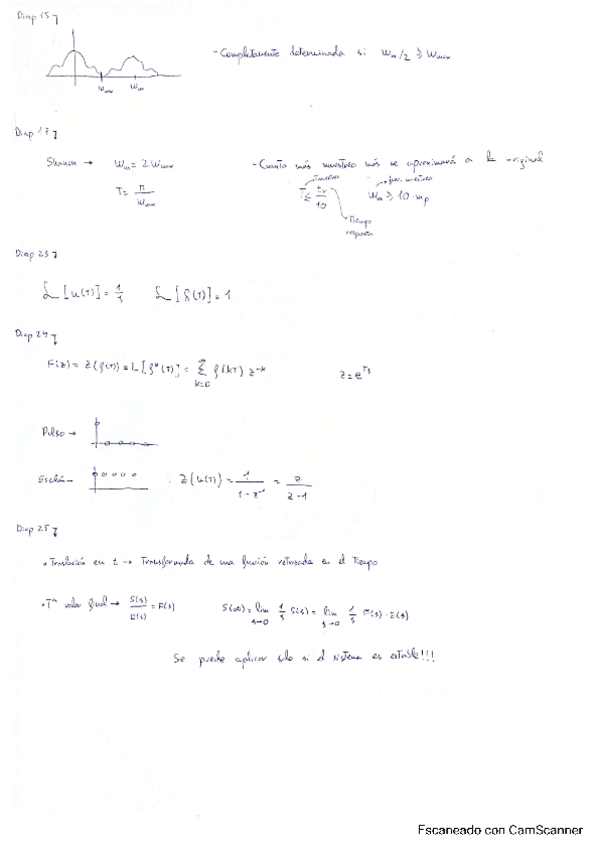 Diap 15
- Completamente determinada si Wm/2 ≥ Wmax
Wmax Wm
Diap 17
Shannon → Wm = 2 Wmax - Cuanto más muestreo más se aproximará a la original
T = π / Wmax T ≤ tr / 10 Wm ≥ 10 · wp
Tiempo respuesta
Diap 23
L[u(T)] = 1/s L[δ(T)] = 1
Diap 24
F(z) = Z(f(T)) = L[f*(T)] = ∑ k=0 ∞ f(kT) z^-k z = e^Ts
Pulso →
Escalón → Z(u(T)) = 1 / (1 - z^-1) = z / (z - 1)
Diap 25
• Traslación en t → Transformada de una función retrasada en el Tiempo
• Tª valor final → S(s) / E(s) = F(s) S(∞) = lim s→0 1/s S(s) = lim s→0 1/s F(s) · E(s)
Se puede aplicar solo si el sistema es estable!!!
Escaneado con CamScanner